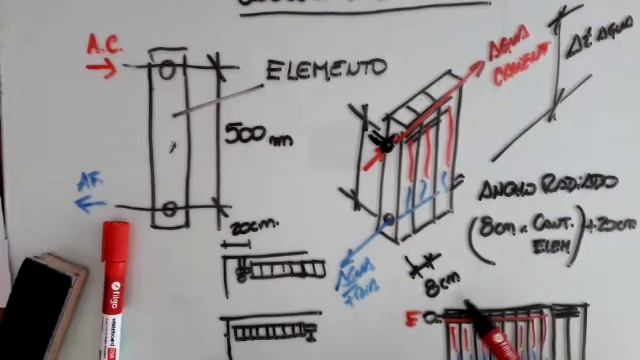 A.C.
ELEMENTO
500 mm
A.F.
20cm.
AGUA
CALIENT
Δt AGUA
ANCHO RADIADO
(8cm x CANT. ELEM) + 20cm
AGUA
FRIA
8cm
E
filgo
whiteboard